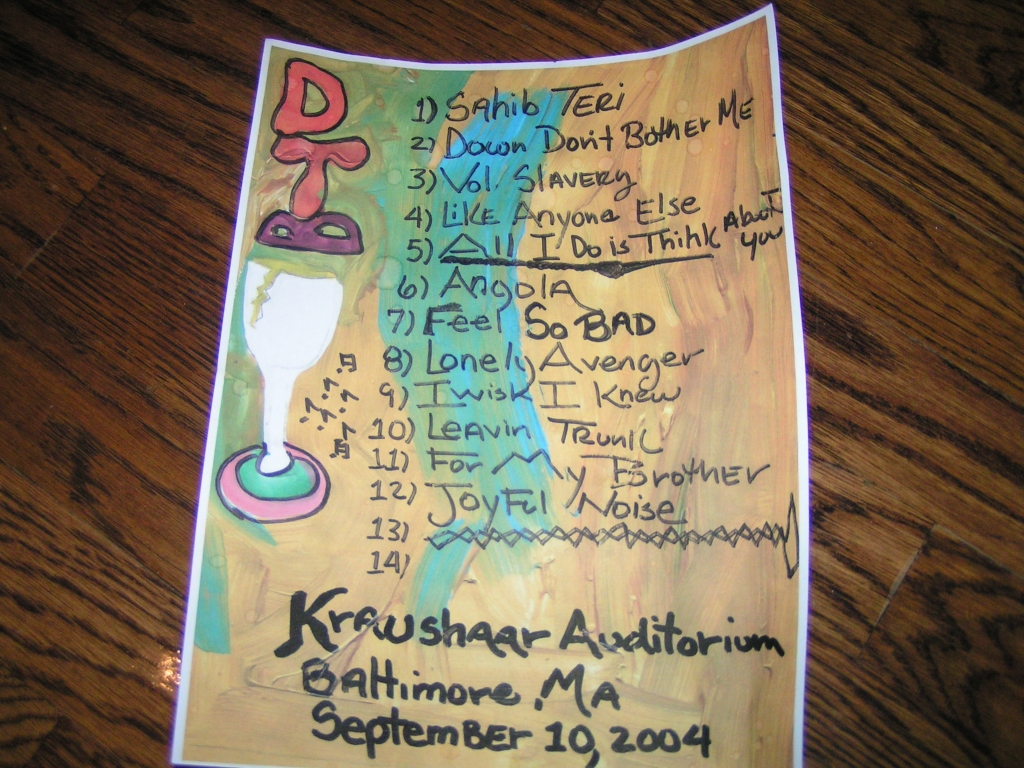 DTB
1) Sahib Teri
2) Down Don't Bother Me
3) Vol. Slavery
4) Like Anyone Else
5) All I Do is Think About You
6) Angola
7) Feel So BAD
8) Lonely Avenger
9) I wish I Knew
10) Leavin Trunk
11) For My Brother
12) Joyful Noise
13)
14)
Kraushaar Auditorium
Baltimore, MA
September 10, 2004